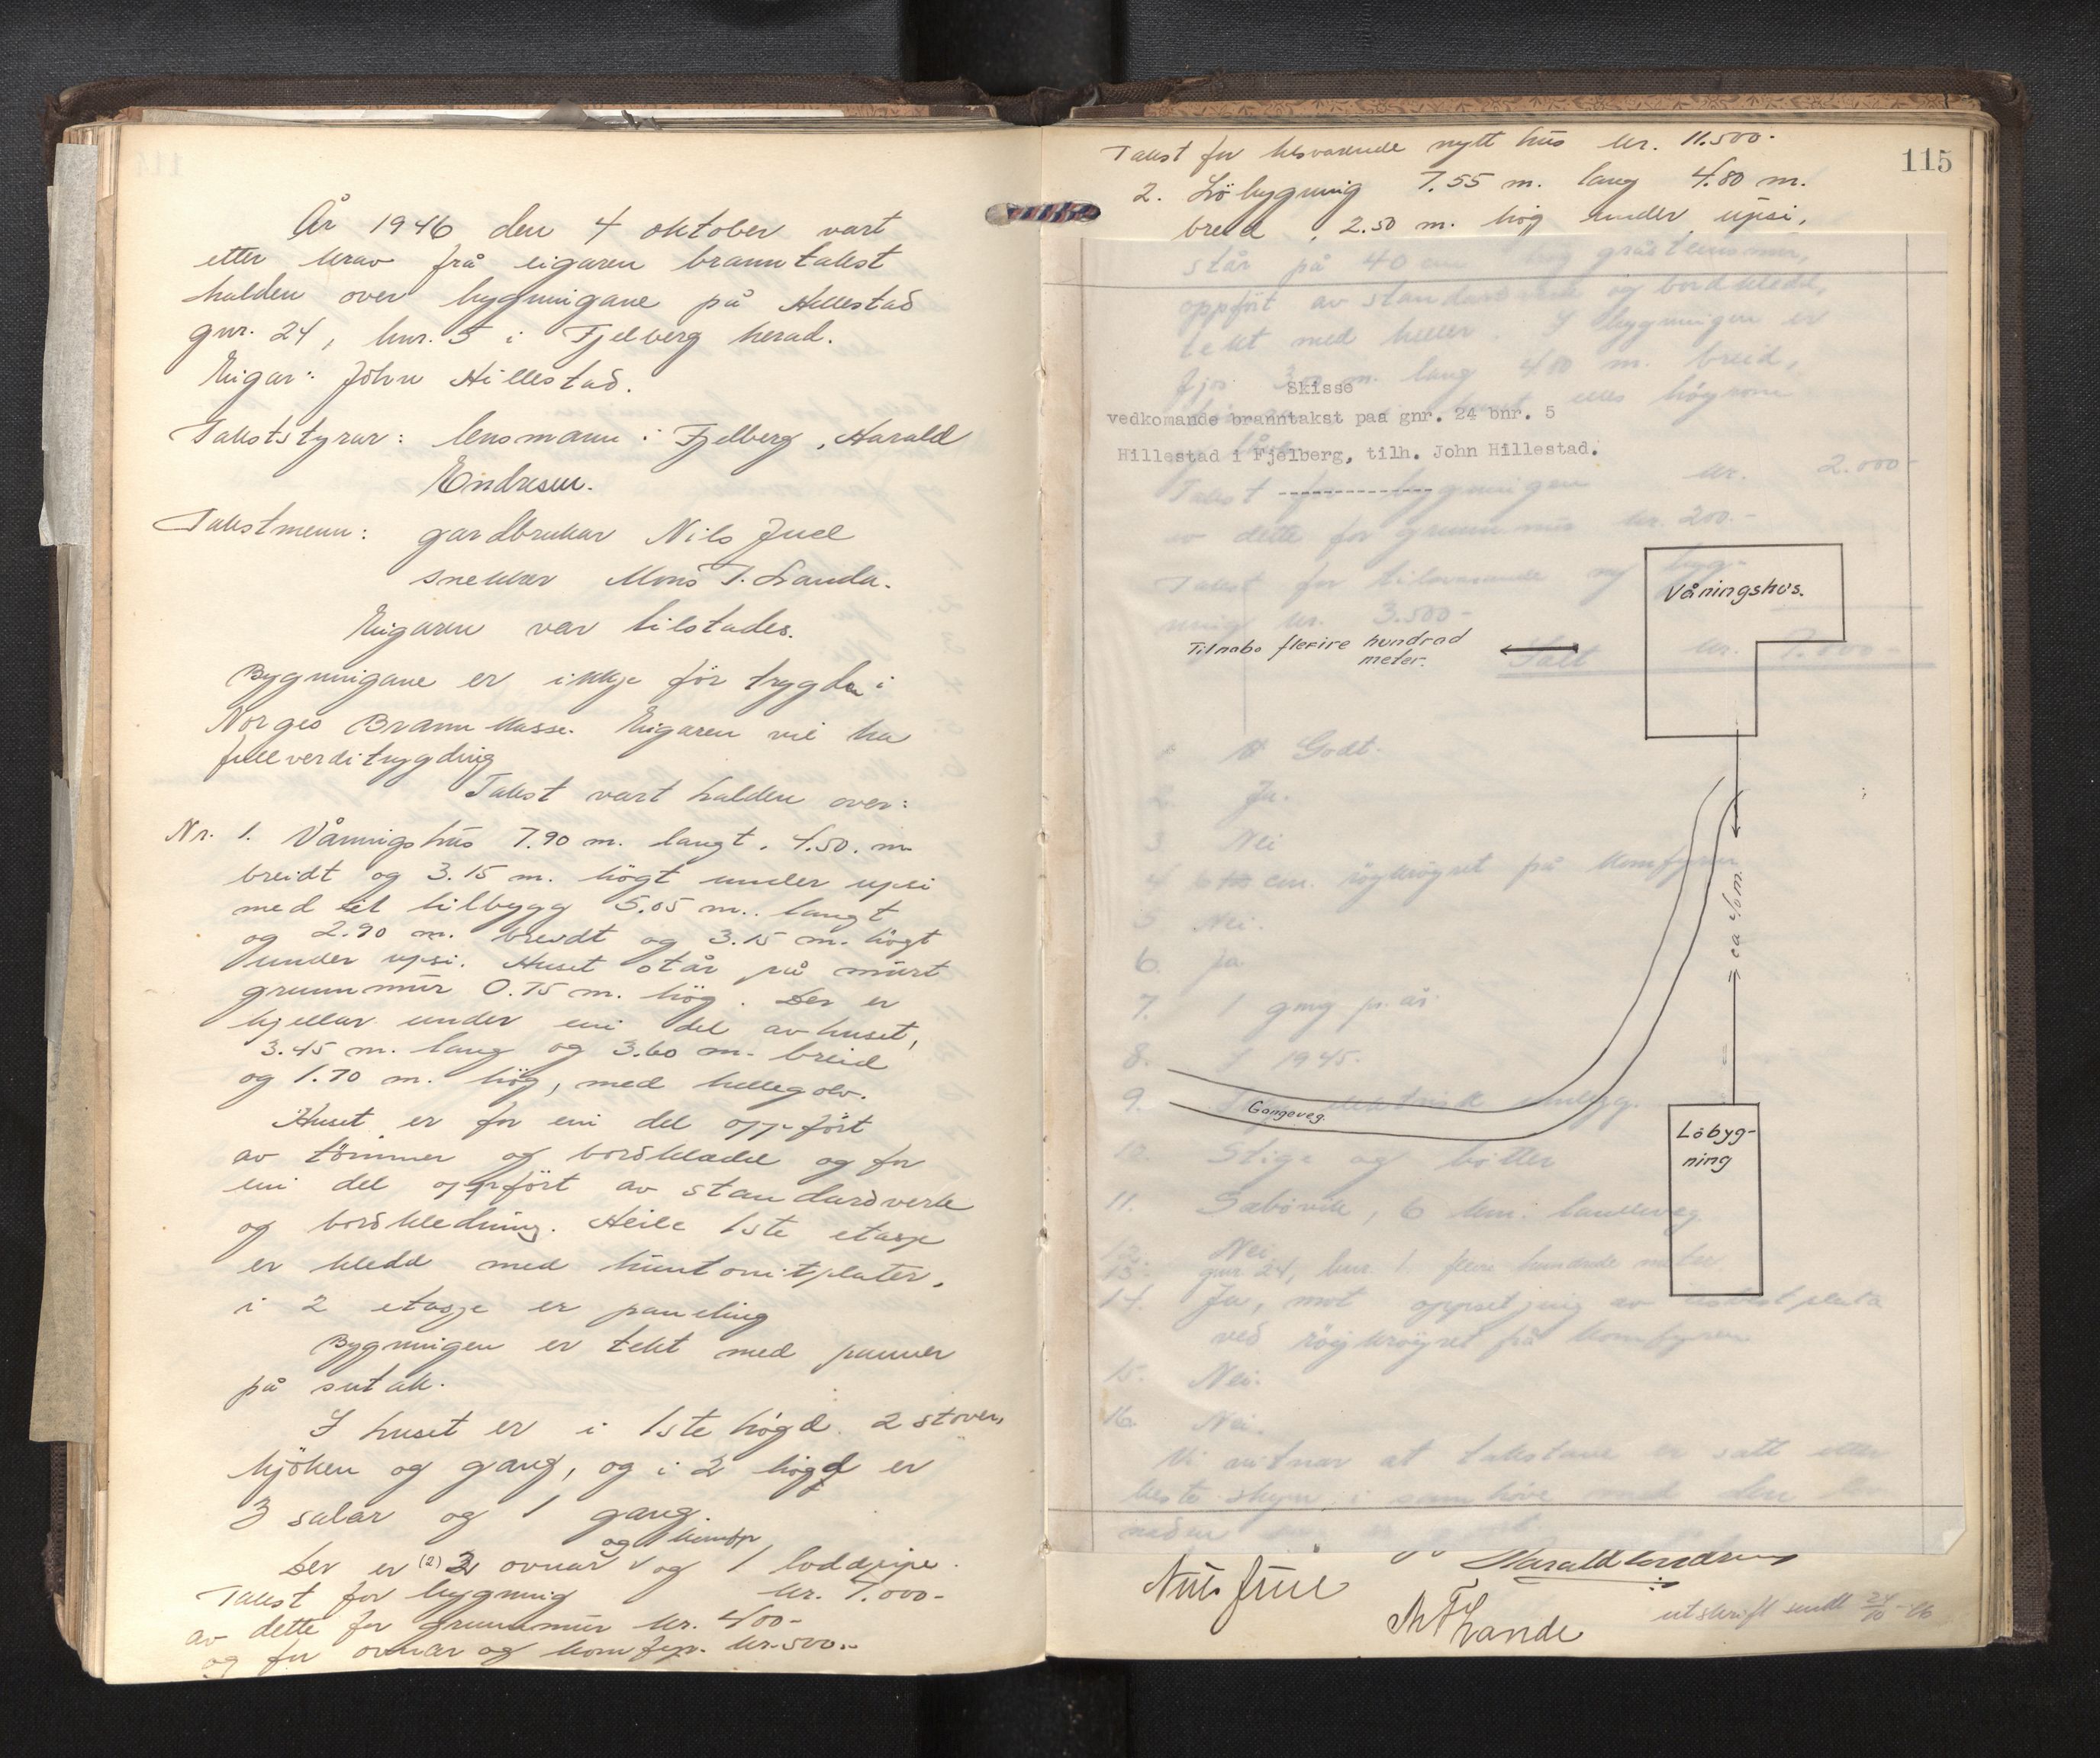 År 1946 den 4 oktober vart
etter krav frå eigaren branntakst
halden over bygningane på Hillestad
gnr. 24, bnr. 5 i Fjelberg herad.
Eigar: John Hillestad.
Takststyrar: lensmann i Fjelberg, Harald
Endresen.
Takstmenn: gardbrukar Nils Juel
snekker Mons T. Landa.
Eigaren var tilstades.
Bygningane er ikkje før trygda i
Norges Brannkasse. Eigaren vil ha
fullverditrygding
Takst vart halden over:
Nr. 1. Våningshus 7.90 m. langt, 4.50. m
breidt og 3.15 m. högt under upsi
med eit tilbygg 5.05 m. langt
og 2.90 m. breidt og 3.15 m. högt
under upsi. Huset står på murt
grunnmur 0.75 m. hög. Der er
kjellar under ein del av huset,
3.45 m. lang og 3.60 m. breid
og 1.70 m. hög, med hellegolv.
Huset er for ein del oppfört
av tömmer og bordkledd og for
ein del oppfört av standardverk
og bordkledning. Heile 1ste etasje
er kledd med huntonitplater,
i 2 etasje er paneling
Bygningen er tekt med panner
på sutak.
I huset er i 1ste högd 2 stover,
kjöken og gang, og i 2 högd er
3 salar og 1 gang.
og komfyr
Der er (2) 2 ovnar og 1 loddpipe.
Takst for bygning kr. 7.000-
av dette for grunnmur kr. 400-
og for ovnar og komfyr. kr. 500.-
115
Takst for tilsvarende nytt hus kr. 11.500.-
2. Löbygning 7.55 m. lang 4.80 m.
breid, 2.50 m. hög under upsi,
står på 40 cm hög gråsteinsmur,
oppfört av standardverk og bordkledd,
tekt med heller. I bygningen er
fjös 3.00 m. lang 4.80 m. breid,
elles höyrom
Skisse
vedkomande branntakst paa gnr. 24 bnr. 5
Hillestad i Fjelberg, tilh. John Hillestad.
--------------
Takst for bygningen kr. 2.000-
av dette for grunnmur kr. 200.-
Takst for tilsvarande ny byg-
ning kr. 3.500-
Våningshus.
Til nabo fleire hundrad
meter.
Ialt kr. 9.000-
1. Godt.
2. Ja.
3. Nei
4 cm. röykröyret på komfyren
5 Nei.
6. Ja
ca m.
7. 1 gang p. år
8. I 1945.
9. elektrisk anlegg.
Gangveg.
Löbyg-
ning
10. Stige og bötter
11. Sæbövik, 6 km. landeveg
12. Nei
13. gnr 24, bnr. 1. fleire hundrede meter
14. Ja, mot oppsetjing av plata
ved röykröyret frå komfyren
15. Nei.
16. Nei.
Vi vitnar at takstane er satt etter
beste skjyn i samhöve med den
Harald Endresen
Nils Juel
M T Lande
utskrift sendt 24/10-46